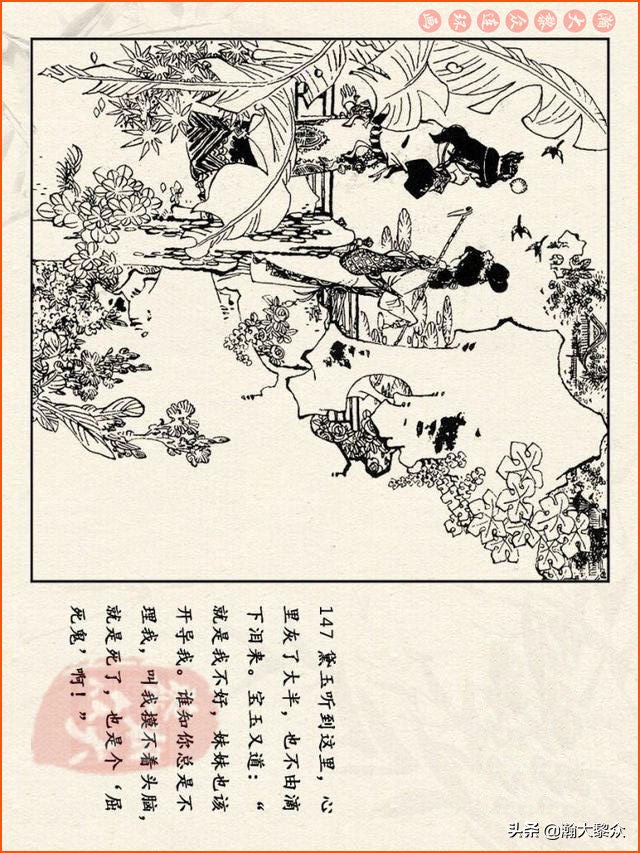 瀚大黎众连环画
147 黛玉听到这里，心
里灰了大半，也不由滴
下泪来。宝玉又道：“
就是我不好，妹妹也该
开导我。谁知你总是不
理我，叫我摸不着头脑，
就是死了，也是个‘屈
死鬼’啊！”
头条 @瀚大黎众